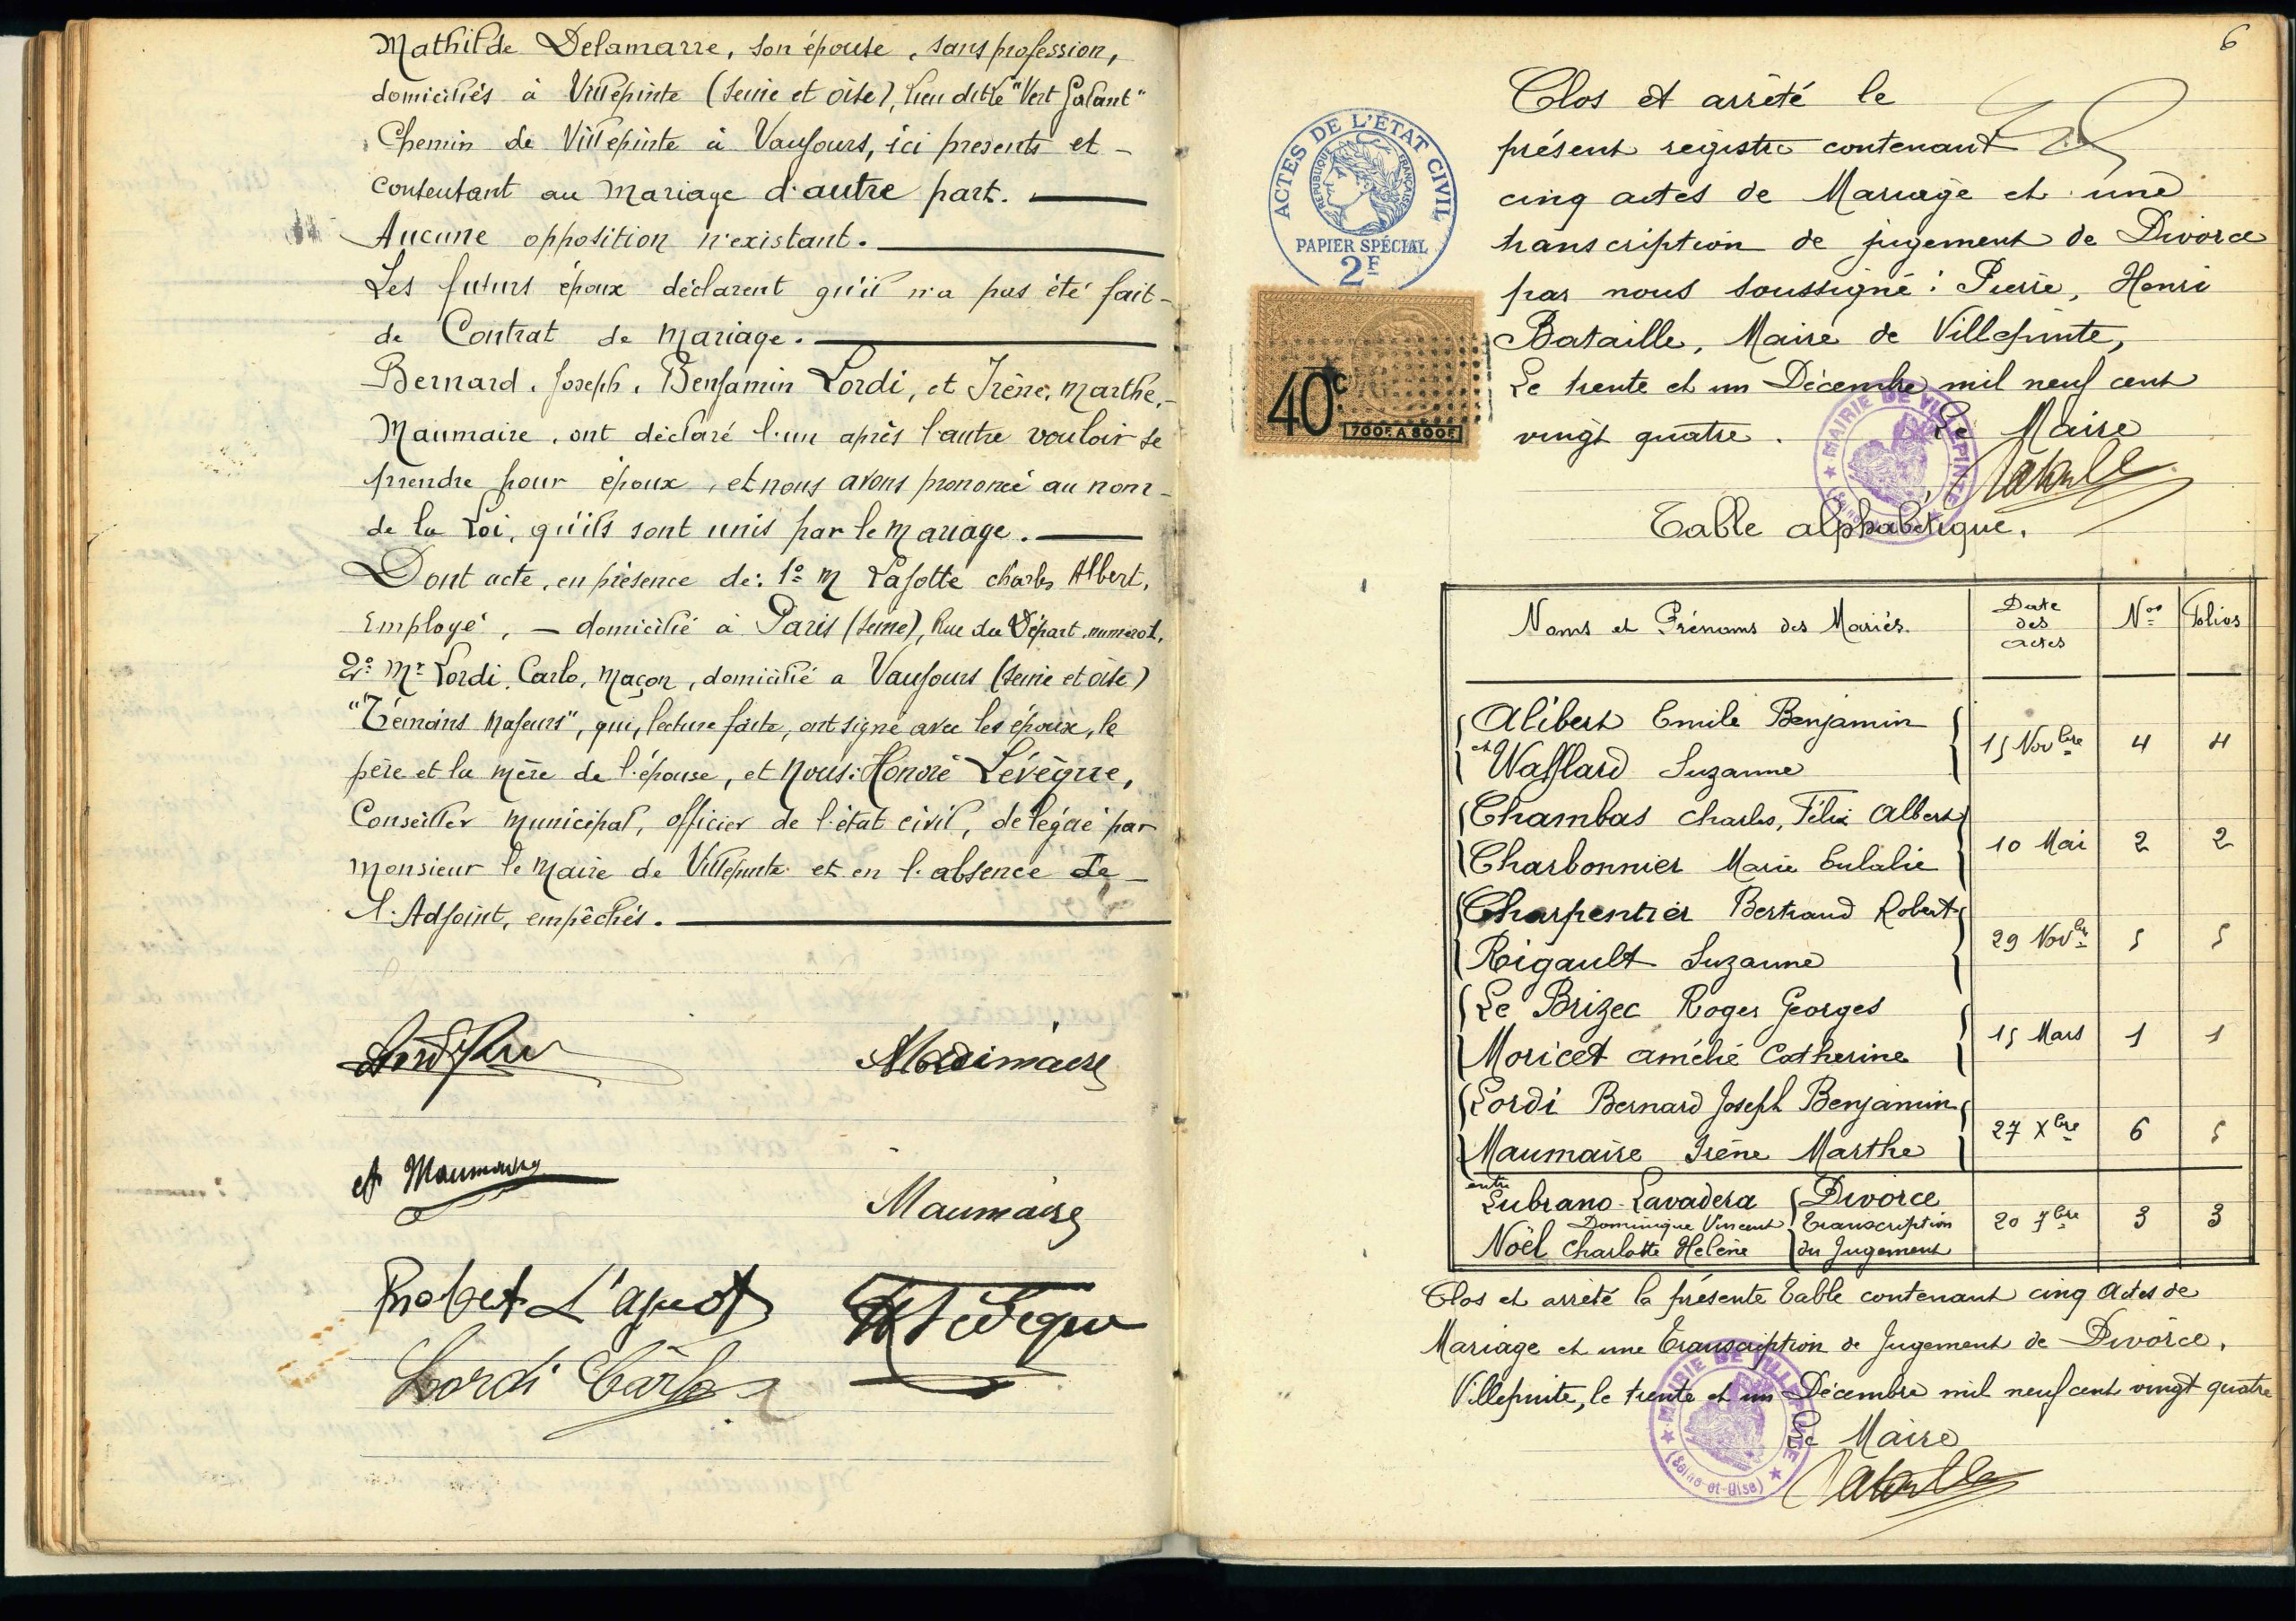 Mathilde Delamarre, son épouse, sans profession,
domiciliés à Villepinte (Seine et Oise), lieu dit le "Vert Galant"
Chemin de Villepinte à Vaujours, ici présents et -
consentant au Mariage d'autre part. —
Aucune opposition n'existant. —
Les futurs époux déclarent qu'il n'a pas été fait -
de Contrat de Mariage. —
Bernard, Joseph, Benjamin Lordi, et Irène, Marthe, -
Maumaire, ont déclaré l'un après l'autre vouloir se
prendre pour époux, et nous avons prononcé au nom -
de la Loi, qu'ils sont unis par le Mariage. —
Dont acte, en présence de: 1º M Lajotte Charles Albert,
Employé, — domicilié à Paris (Seine), Rue du Départ, numéro 1,
2º Mr Lordi, Carlo, Maçon, domicilié a Vaujours (Seine et Oise)
"Témoins Majeurs", qui, lecture faite, ont signé avec les époux, le
père et la mère de l'épouse, et Nous: Honoré Lévêque,
Conseiller Municipal, officier de l'état civil, délégué par
Monsieur le Maire de Villepinte et en l'absence de -
l'Adjoint, empêchés. —
Maumaire
Maumaire
Lordi Carlo
6
Clos et arrêté le
présent registre contenant
cinq actes de Mariage et une
transcription de jugement de Divorce
par nous soussigné: Pierre, Henri
Bataille, Maire de Villepinte,
Le trente et un Décembre mil neuf cent
vingt quatre. Le Maire
ACTES DE L'ÉTAT CIVIL
RÉPUBLIQUE FRANÇAISE
PAPIER SPÉCIAL
2F
40c
700F A 800F
MAIRIE DE VILLEPINTE
Bataille
Table alphabétique.
Noms et Prénoms des Mariés. Date des actes Nos Folios
Alibert Emile Benjamin
et Wafflard Suzanne 15 Novbre 4 4
Chambas Charles, Félix Albert
Charbonnier Marie Eulalie 10 Mai 2 2
Charpentier Bertrand Robert
Rigault Suzanne 29 Novbre 5 5
Le Brizec Roger Georges
Moricet Amélie Catherine 15 Mars 1 1
Lordi Bernard Joseph Benjamin
Maumaire Irène Marthe 27 Xbre 6 5
entre
Lubrano-Lavadera Divorce
Dominique Vincent Transcription 20 7bre 3 3
Noël Charlotte Hélène du Jugement
Clos et arrêté la présente table contenant cinq Actes de
Mariage et une Transcription de Jugement de Divorce.
Villepinte, le trente et un Décembre mil neuf cent vingt quatre
Le Maire
MAIRIE DE VILLEPINTE
(Seine-et-Oise)
Bataille